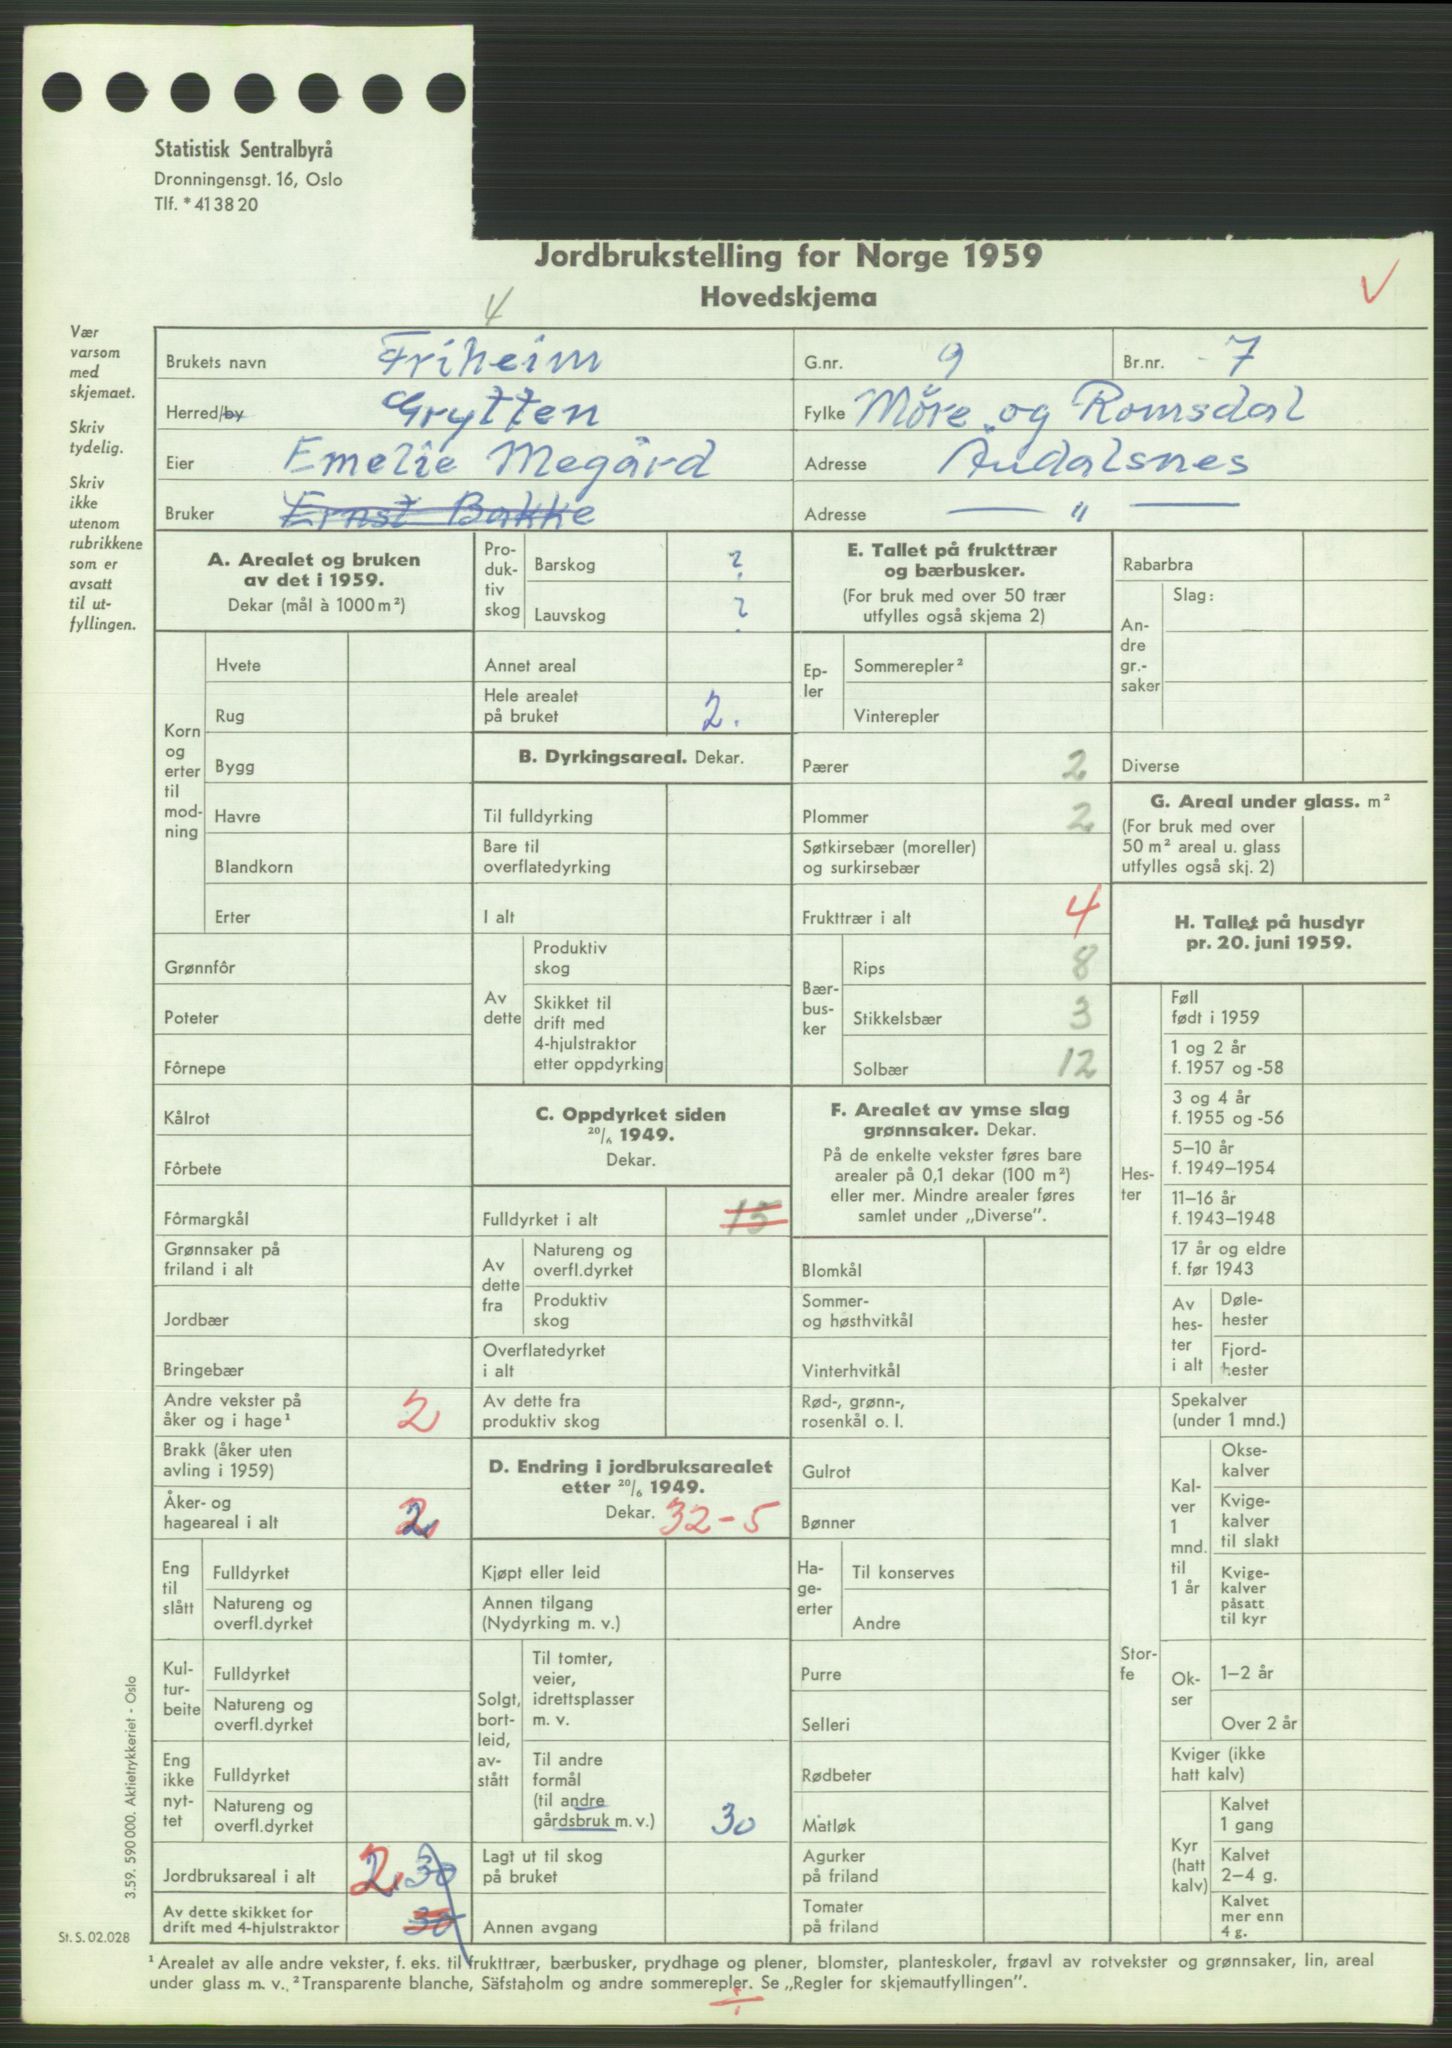 Statistisk Sentralbyrå
Dronningensgt. 16, Oslo
Tlf. * 41 38 20
Jordbrukstelling for Norge 1959
Hovedskjema
4
Vær
varsom
med
skjemaet.
Skriv
tydelig.
Skriv
ikke
utenom
rubrikkene
som er
avsatt
til ut-
fyllingen.
Brukets navn Friheim G.nr. 9 Br.nr. 7
Herred/by Grytten Fylke Möre og Romsdal
Eier Emelie Megård Adresse Åndalsnes
Bruker Ernst Bakke Adresse — " —
A. Arealet og bruken
av det i 1959.
Dekar (mål à 1000 m²)
Korn
og
erter
til
mod-
ning
Hvete
Rug
Bygg
Havre
Blandkorn
Erter
Grønnfôr
Poteter
Fôrnepe
Kålrot
Fôrbete
Fôrmargkål
Grønnsaker på
friland i alt
Jordbær
Bringebær
Andre vekster på
åker og i hage¹ 2
Brakk (åker uten
avling i 1959)
Åker- og
hageareal i alt 2
Eng
til
slått
Fulldyrket
Natureng og
overfl.dyrket
Kul-
tur-
beite
Fulldyrket
Natureng og
overfl.dyrket
Eng
ikke
nyt-
tet
Fulldyrket
Natureng og
overfl.dyrket
Jordbruksareal i alt 2. 30
Av dette skikket for
drift med 4-hjulstraktor 30
Pro-
duk-
tiv
skog
Barskog ?
Lauvskog ?
Annet areal
Hele arealet
på bruket 2.
B. Dyrkingsareal. Dekar.
Til fulldyrking
Bare til
overflatedyrking
I alt
Av
dette
Produktiv
skog
Skikket til
drift med
4-hjulstraktor
etter oppdyrking
C. Oppdyrket siden
20/6 1949.
Dekar.
Fulldyrket i alt 15
Av
dette
fra
Natureng og
overfl.dyrket
Produktiv
skog
Overflatedyrket
i alt
Av dette fra
produktiv skog
D. Endring i jordbruksarealet
etter 20/6 1949.
Dekar. 32-5
Kjøpt eller leid
Annen tilgang
(Nydyrking m. v.)
Solgt,
bort-
leid,
av-
stått
Til tomter,
veier,
idrettsplasser
m. v.
Til andre
formål
(til andre
gårdsbruk m. v.) 30
Lagt ut til skog
på bruket
Annen avgang
E. Tallet på frukttrær
og bærbusker.
(For bruk med over 50 trær
utfylles også skjema 2)
Ep-
ler
Sommerepler²
Vinterepler
Pærer 2
Plommer 2
Søtkirsebær (moreller)
og surkirsebær
Frukttrær i alt 4
Bær-
bus-
ker
Rips 8
Stikkelsbær 3
Solbær 12
F. Arealet av ymse slag
grønnsaker. Dekar.
På de enkelte vekster føres bare
arealer på 0,1 dekar (100 m²)
eller mer. Mindre arealer føres
samlet under „Diverse".
Blomkål
Sommer-
og høsthvitkål
Vinterhvitkål
Rød-, grønn-,
rosenkål o. l.
Gulrot
Bønner
Ha-
ge-
erter
Til konserves
Andre
Purre
Selleri
Rødbeter
Matløk
Agurker
på friland
Tomater
på friland
Rabarbra
An-
dre
gr.-
saker
Slag:
Diverse
G. Areal under glass. m²
(For bruk med over
50 m² areal u. glass
utfylles også skj. 2)
H. Tallet på husdyr
pr. 20. juni 1959.
Hes-
ter
Føll
født i 1959
1 og 2 år
f. 1957 og -58
3 og 4 år
f. 1955 og -56
5–10 år
f. 1949–1954
11–16 år
f. 1943–1948
17 år og eldre
f. før 1943
Av
hes-
ter
i alt
Døle-
hester
Fjord-
hester
Stor-
fe
Spekalver
(under 1 mnd.)
Kal-
ver
1
mnd.
til
1 år
Okse-
kalver
Kvige-
kalver
til slakt
Kvige-
kalver
påsatt
til kyr
Ok-
ser
1–2 år
Over 2 år
Kviger (ikke
hatt kalv)
Kyr
(hatt
kalv)
Kalvet
1 gang
Kalvet
2–4 g.
Kalvet
mer enn
4 g.
3.59. 590 000. Aktietrykkeriet - Oslo
St. S. 02.028
¹ Arealet av alle andre vekster, f. eks. til frukttrær, bærbusker, prydhage og plener, blomster, planteskoler, frøavl av rotvekster og grønnsaker, lin, areal
under glass m. v. ² Transparente blanche, Säfstaholm og andre sommerepler. Se „Regler for skjemautfyllingen".